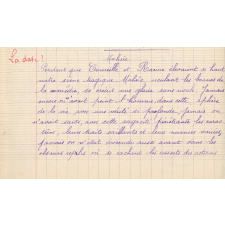 La date !
Molière
Pendant que Corneille et Racine élevaient si haut
notre scène tragique Molière, reculant les bornes de
la comédie, se créait une gloire sans rivale. Jamais
encore n'avait peint l'homme dans cette sphère
de la vie, avec une vérité si profonde. Jamais on
n'avait saisi avec cette sagacité pénétrante les
leurs traits saillants et leurs nuances
jamais on n'était descendu aussi avant dans les
obscurs replis où se cachent les secrets du